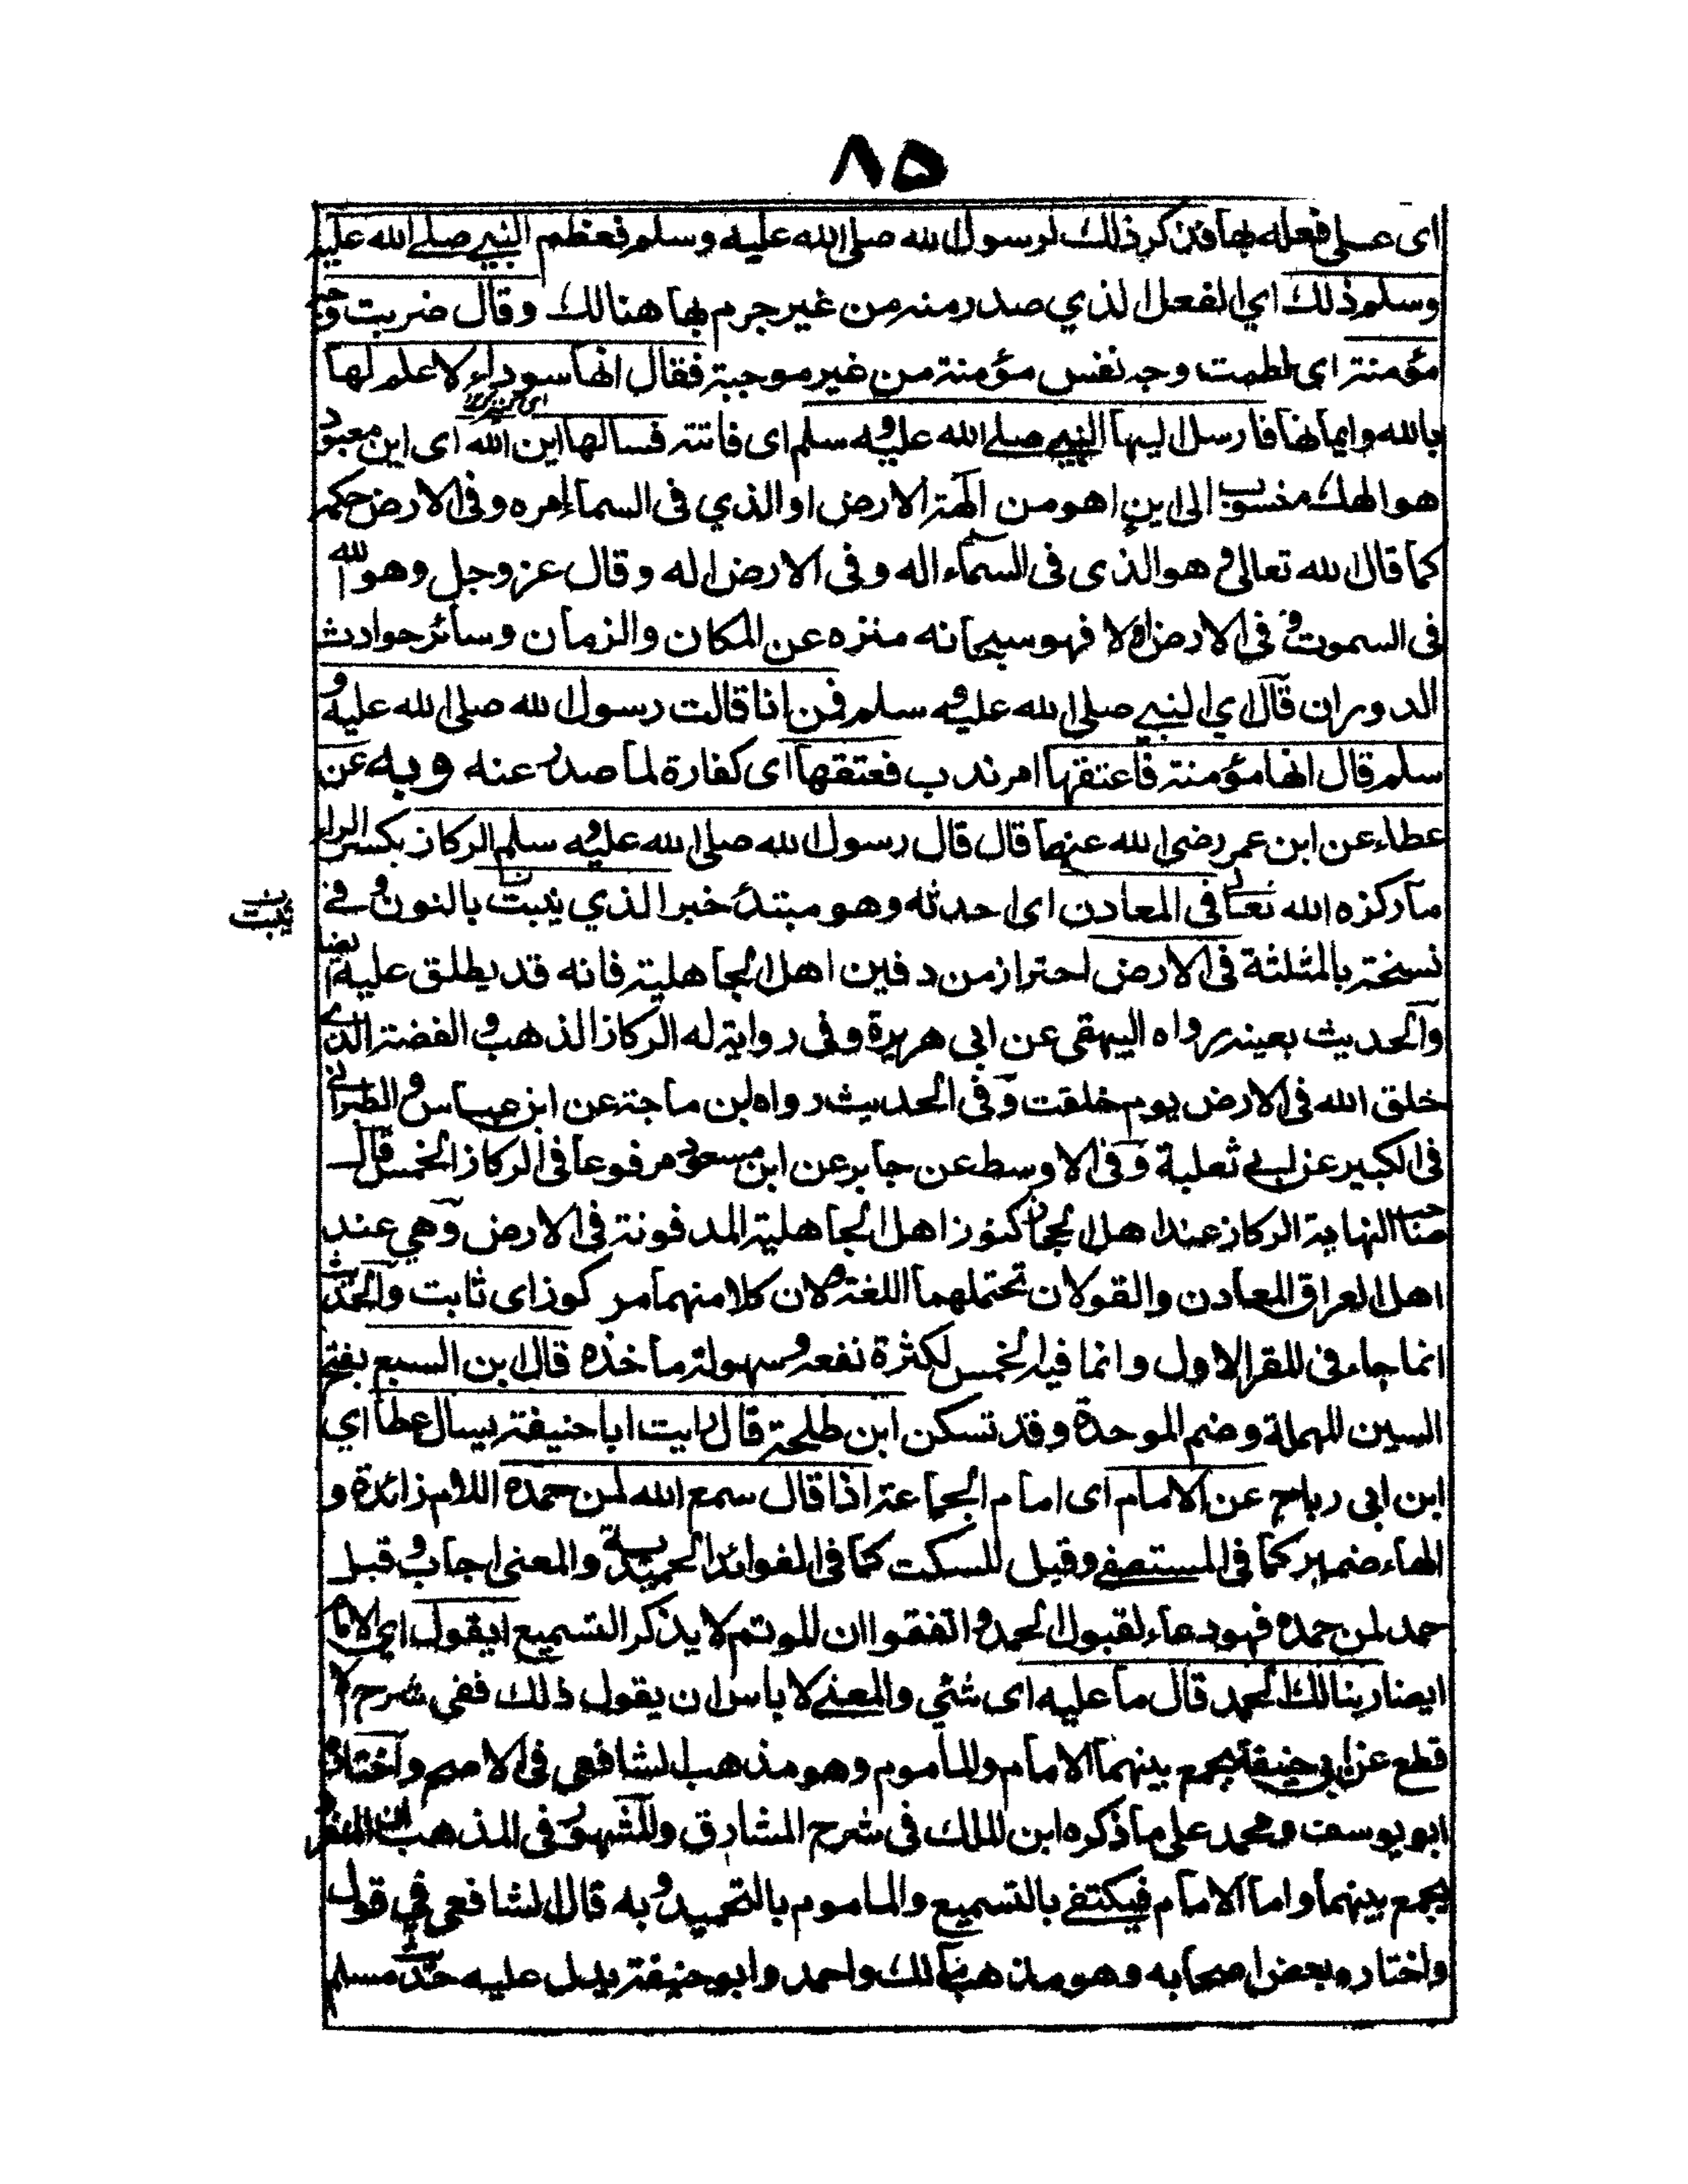 ٨٥
اى على فعله بها فذكر ذلك لرسول الله صلى الله عليه وسلم فعظم النبي صلى الله عليه
وسلم ذلك اي الفعل الذي صدر منه من غير جرم بها هنالك وقال ضربت وجه
مؤمنة اى لطمت وجه نفس مؤمنة من غير موجبة فقال انها سوداء لا علم لها
بالله وايمانها فارسل اليها النبي صلى الله عليه وسلم اى فاتته فسالها اين الله اى اين معبود
هو الهك منسوب الى اين اهو من الهة الارض او الذي فى السماء امره وفى الارض حكمه
كما قال الله تعالى وهو الذى فى السماء اله وفى الارض اله وقال عز وجل وهو الله
فى السموت وفى الارض والا فهو سبحانه منزه عن المكان والزمان وسائر حوادث
الدوران قال اي النبي صلى الله عليه وسلم فمن انا قالت رسول الله صلى الله عليه و
سلم قال انها مؤمنة فاعتقها امر ندب فعتقها اى كفارة لما صدر عنه وبه عن
عطاء عن ابن عمر رضي الله عنهما قال قال رسول الله صلى الله عليه وسلم الركاز بكسر الراء
ما ركزه الله تعالى فى المعادن اى احدثه وهو مبتدء خبر الذي ينبت بالنون وفي
يثبت
نسخة بالمثلثة فى الارض احتراز من دفين اهل الجاهلية فانه قد يطلق عليه ايضا
والحديث بعينه رواه البيهقى عن ابي هريرة وفى رواية له الركاز الذهب والفضة الذي
خلق الله فى الارض يوم خلقت وفى الحديث رواه ابن ماجة عن ابن عباس والطبراني
فى الكبير عن ابي ثعلبة وفى الاوسط عن جابر عن ابن مسعود مرفوعا فى الركاز الخمس قال
صاحب النهاية الركاز عند اهل الحجاز كنوز اهل الجاهلية المدفونة فى الارض وهي عند
اهل العراق المعادن والقولان تحتملهما اللغة لان كلا منهما مركوز اى ثابت والحديث
انما جاء فى للقر الاول وانما فيه الخمس لكثرة نفعه وسهولة ماخذه قال ابن السبع بفتح
السين المهملة وضم الموحدة وقد تسكن ابن طلحة قال رايت ابا حنيفة يسال عطا اي
ابن ابى رباح عن الامام اى امام الجماعة اذا قال سمع الله لمن حمده اللام زائدة و
الهاء ضمير كما فى المستصفى وقيل للسكت كما فى الفوائد الحميدية والمعنى اجاب وقبل
حمد لمن حمده فهو دعاء لقبول الحمد واتفقوا ان للوتم لا يذكر التسميع ايقول اي الامام
ايضا ربنا لك الحمد قال ما عليه اى شئي والمعنى لا باس ان يقول ذلك ففي شرح الا
قطع عن ابي حنيفة يجمع بينهما الامام والماموم وهو مذهب الشافعي فى الاصح واختاره
ابو يوسف ومحمد على ما ذكره ابن الملك فى شرح المشارق والمشهور فى المذهب ان المنفرد
يجمع بينهما واما الامام فيكتفي بالتسميع والماموم بالتحميد وبه قال الشافعي في قول
واختاره بعض اصحابه وهو مذهب مالك واحمد وابو حنيفة يدل عليه حديث مسلم